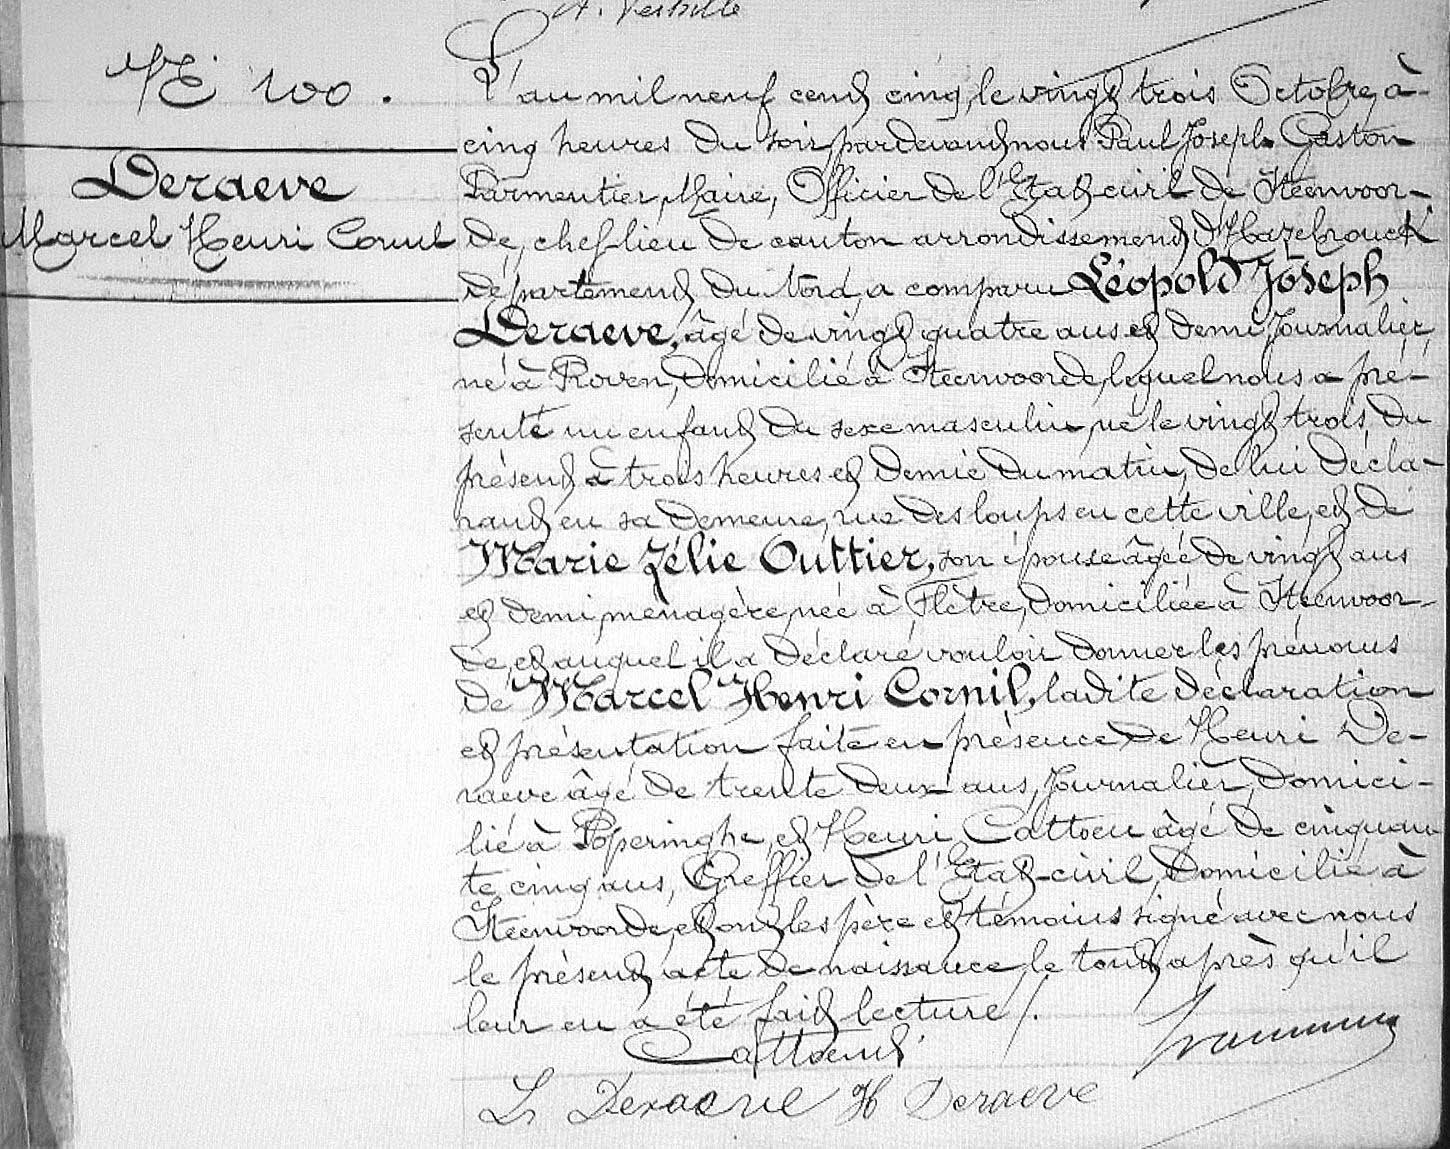 A. Verhille
N° 100.
Deraeve
Marcel Henri Cornil
L'an mil neuf cent cinq, le vingt trois Octobre, à
cinq heures du soir, pardevant nous Paul Joseph Gaston
Parmentier, Maire, Officier de l'Etat-civil de Steenvoor-
de, chef-lieu de canton arrondissement d'Hazebrouck
département du Nord, a comparu Léopold Joseph
Deraeve, âgé de vingt quatre ans et demi, Journalier,
né à Roven, domicilié à Steenvoorde, lequel nous a pré-
senté un enfant du sexe masculin, né le vingt trois, du
présent à trois heures et demie du matin, de lui décla-
rant en sa demeure, rue des loups en cette ville, et de
Marie Zélie Outtier, son épouse âgée de vingt ans
et demi, ménagère, née à Flêtre, domiciliée à Steenvoor-
de, et auquel il a déclaré vouloir donner les prénoms
de Marcel Henri Cornil, ladite déclaration
et présentation faite en présence de Henri De-
raeve âgé de trente deux ans, Journalier, domici-
lié à Poperinghe, et Henri Cattoen âgé de cinquan-
te cinq ans, Greffier de l'Etat-civil, domicilié à
Steenvoorde, et ont les père et témoins signé avec nous
le présent acte de naissance, le tout après qu'il
leur en a été fait lecture /.
Cattoen
L Deraeve H Deraeve